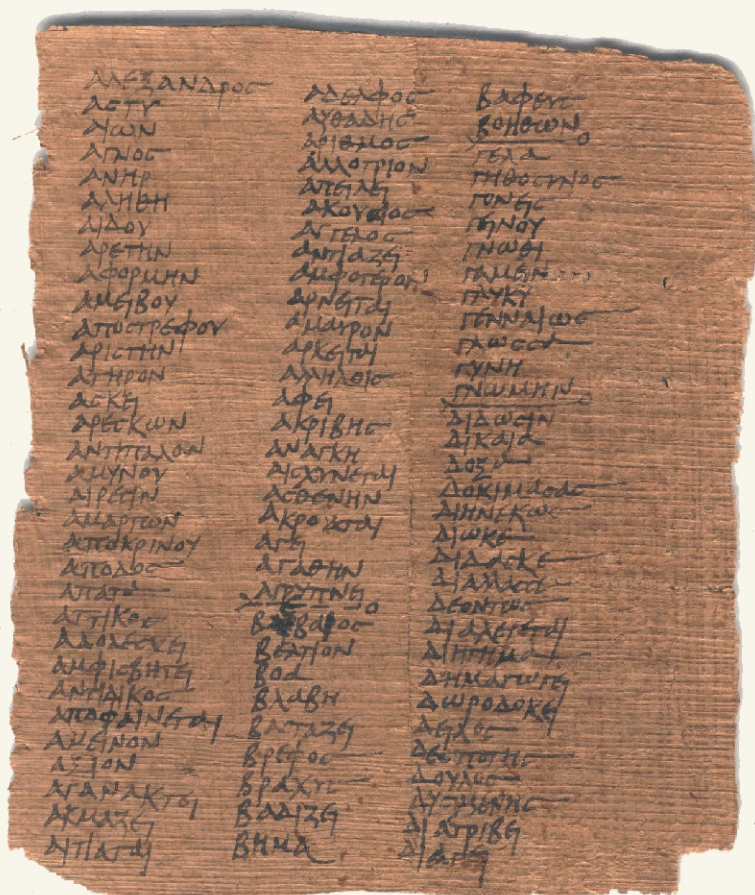 ΑΛΕΞΑΝΔΡΟΣ
ΑΣΤΥ
ΑΙΩΝ
ΑΓΝΟΣ
ΑΝΗΡ
ΑΛΗΘΗ
ΑΙΔΟΥ
ΑΡΕΤΗΝ
ΑΦΟΡΜΗΝ
ΑΜΕΙΒΟΥ
ΑΠΟΣΤΡΕΦΟΥ
ΑΡΙΣΤΗΝ
ΑΓΗΡΟΝ
ΑΣΚΕΙ
ΑΡΕΣΚΩΝ
ΑΝΤΙΠΑΛΟΝ
ΑΜΥΝΟΥ
ΑΙΡΕΣΙΝ
ΑΜΑΡΤΩΝ
ΑΠΟΚΡΙΝΟΥ
ΑΠΟΔΟΣ
ΑΠΑΤΑ
ΑΤΤΙΚΟΣ
ΑΔΟΛΕΣΧΕΙ
ΑΜΦΙΣΒΗΤΕΙ
ΑΝΗΔΙΚΟΣ
ΑΠΟΦΑΙΝΕΤΑΙ
ΑΜΕΙΝΟΝ
ΑΞΙΟΝ
ΑΓΑΝΑΚΤΕΙ
ΑΚΜΑΖΕΙ
ΑΙΤΙΑΤΑΙ
ΑΔΕΛΦΟΣ
ΑΥΘΑΔΗΣ
ΑΡΙΘΜΟΣ
ΑΛΛΟΤΡΙΟΝ
ΑΠΕΙΛΕΙ
ΑΚΟΥΣΙΟΣ
ΑΓΓΕΛΟΣ
ΑΝΤΙΑΖΕΙ
ΑΜΦΟΤΕΡΟΝ
ΑΡΝΕΙΤΑΙ
ΑΜΑΥΡΟΝ
ΑΡΚΕΙΤΑΙ
ΑΦΕΙ
ΑΚΡΙΒΗΣ
ΑΝΑΓΚΗ
ΑΙΣΧΥΝΕΤΑΙ
ΑΣΘΕΝΗΝ
ΑΚΡΟΑΤΑΙ
ΑΓΕΙ
ΑΓΑΘΗΝ
ΑΓΡΥΠΝΕΙ
ΒΑΡΒΑΡΟΣ
ΒΕΛΤΙΟΝ
ΒΟΑ
ΒΛΑΒΗ
ΒΑΣΤΑΖΕΙ
ΒΡΕΦΟΣ
ΒΡΑΧΥΣ
ΒΑΔΙΖΕΙ
ΒΗΜΑ
ΒΑΦΕΥΣ
ΒΟΗΘΩΝ
ΓΕΛΑ
ΓΗΘΟΣΥΝΟΣ
ΓΟΝΕΙΣ
ΓΕΙΝΟΥ
ΓΝΩΘΙ
ΓΑΜΕΙΝ
ΓΛΥΚΥ
ΓΕΝΝΑΙΩΣ
ΓΛΩΣΣΑ
ΓΥΝΗ
ΓΝΩΜΗΝ
ΔΙΔΩΣΙΝ
ΔΙΚΑΙΑ
ΔΟΞΑ
ΔΟΚΙΜΑΣΑΣ
ΔΙΗΝΕΚΩΣ
ΔΙΩΚΕ
ΔΙΔΑΣΚΕ
ΔΙΑΛΛΑΣΣΕ
ΔΕΟΝΤΩΣ
ΔΙΑΛΕΓΕΤΑΙ
ΔΙΗΓΗΜΑ
ΔΗΜΑΓΩΓΕΙ
ΔΩΡΟΔΟΚΕΙ
ΔΕΙΛΟΣ
ΔΕΣΠΟΤΗΣ
ΔΟΥΛΟΣ
ΔΥΣΜΕΝΗΣ
ΔΙΑΤΡΙΒΕΙ